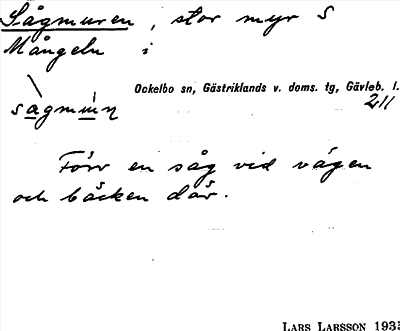 Sågmuren, stor myr S
Mångeln i
Ockelbo sn, Gästriklands v. doms. tg, Gävleb. l.
211
sagmun
Förr en såg vid vägen
och bäcken där.
LARS LARSSON 1935